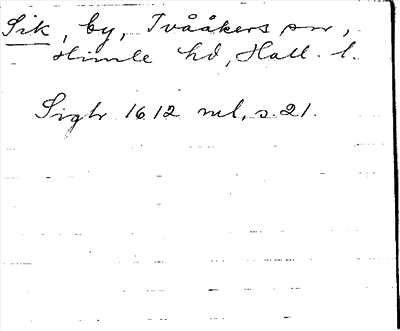 Sik, by, Tvååkers sn,
Himle hd, Hall. l.
Sigtr 1612 ml, s. 21.